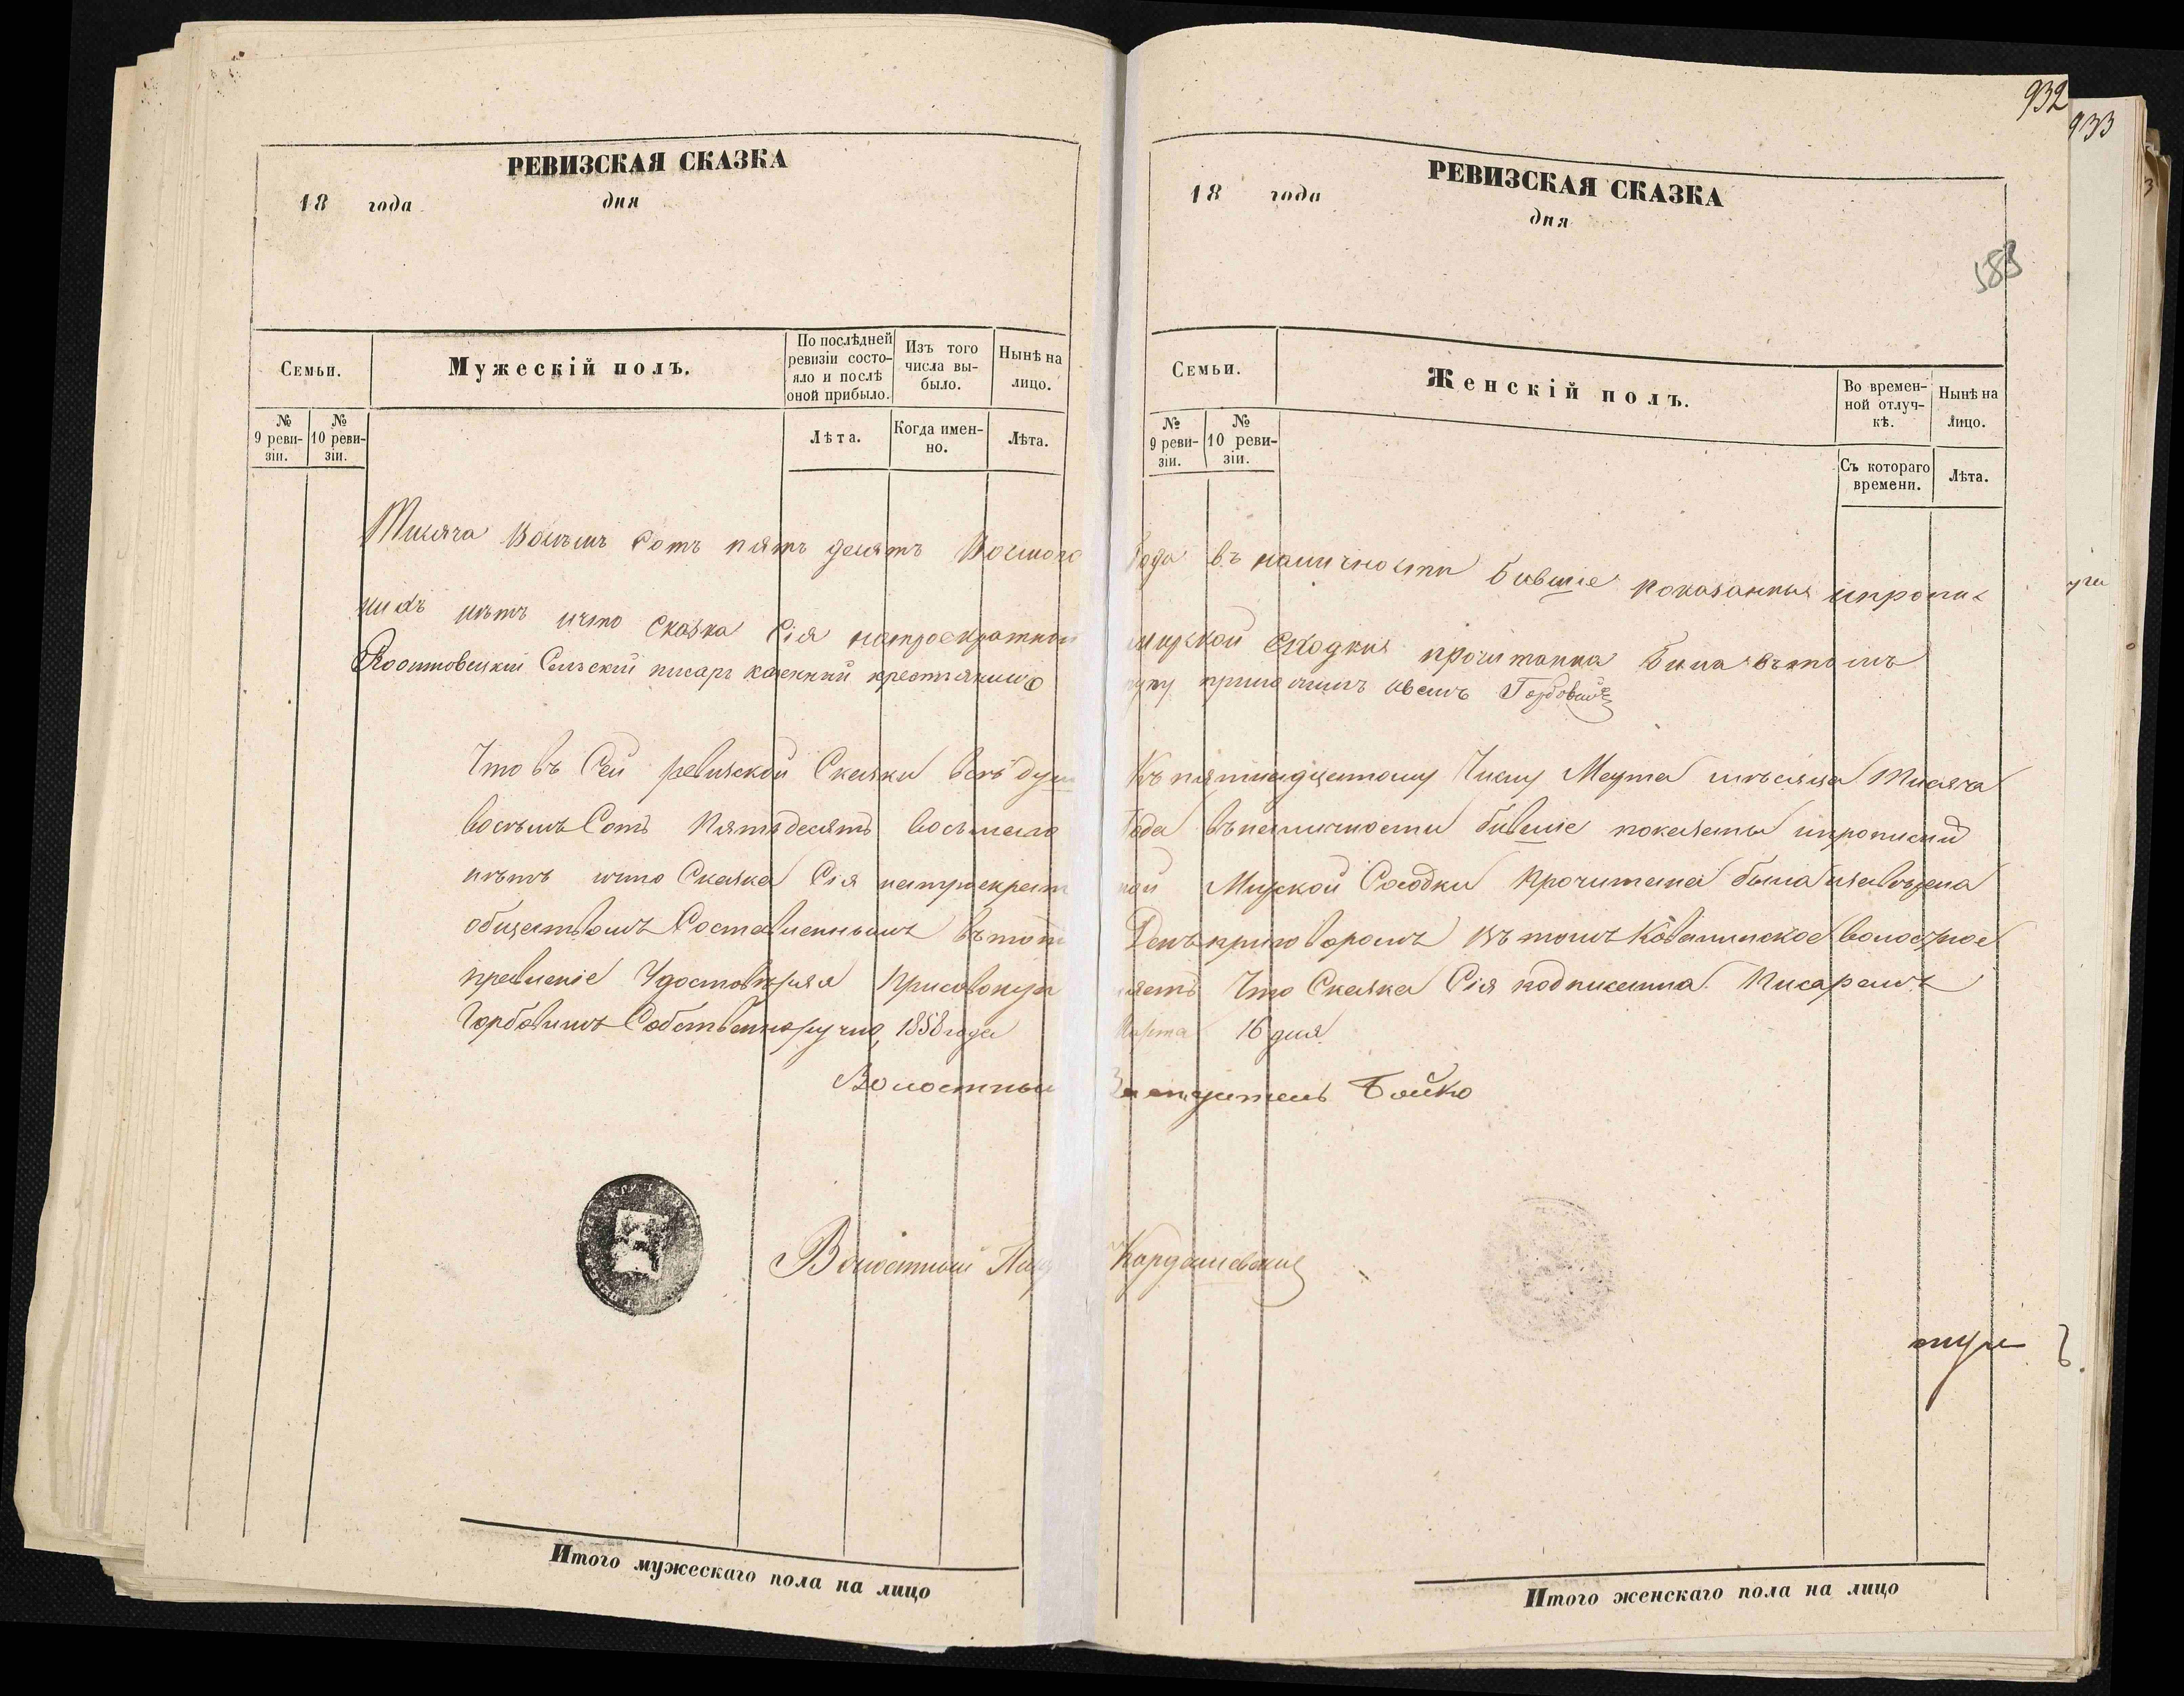 932
933
РЕВИЗСКАЯ СКАЗКА
18 года дня
Семьи.
Мужескій полъ.
По послѣдней ревизіи состо-
яло и послѣ оной прибыло.
Изъ того числа вы-
было.
Нынѣ на лицо.
№ 9 реви-
зіи.
№ 10 реви-
зіи.
Лѣта.
Когда имен-
но.
Лѣта.
РЕВИЗСКАЯ СКАЗКА
18 года дня
Семьи.
Женскій полъ.
Во времен-
ной отлуч-
кѣ.
Нынѣ на лицо.
№ 9 реви-
зіи.
№ 10 реви-
зіи.
Съ котораго времени.
Лѣта.
Тисяча Восѣмъ Сотъ пятъ десятъ Восмого Года въ наличности бывшіе показанны
нихъ нѣтъ ичто сказка Сія натроекратной мирской сходкы прочитанна была вътомъ
Сельскій писаръ казенный крестянинъ Иванъ
Что въ Сей ревизской Сказки всѣ душ Къ пятнадцатому Числу Марта мѣсяца Тисяча
восѣмъ Сотъ Пятьдесятъ восьмаго Года въналичности бывшіе показаты
нѣтъ ичто Сказка Сія натроекрат ной Мирской Сходки Прочитана была
обществомъ Составленнымъ вътот День приговоромъ Въ томъ волосное
правленіе Удостовѣряя Присовокуп ляетъ Что Сказка Сія подписанна Писаремъ
Собственноручно, 1858 года Марта 16 дня
Волостный Засѣдатель Бойко
Волостный Кардашевскій
Итого мужескаго пола на лицо
Итого женскаго пола на лицо